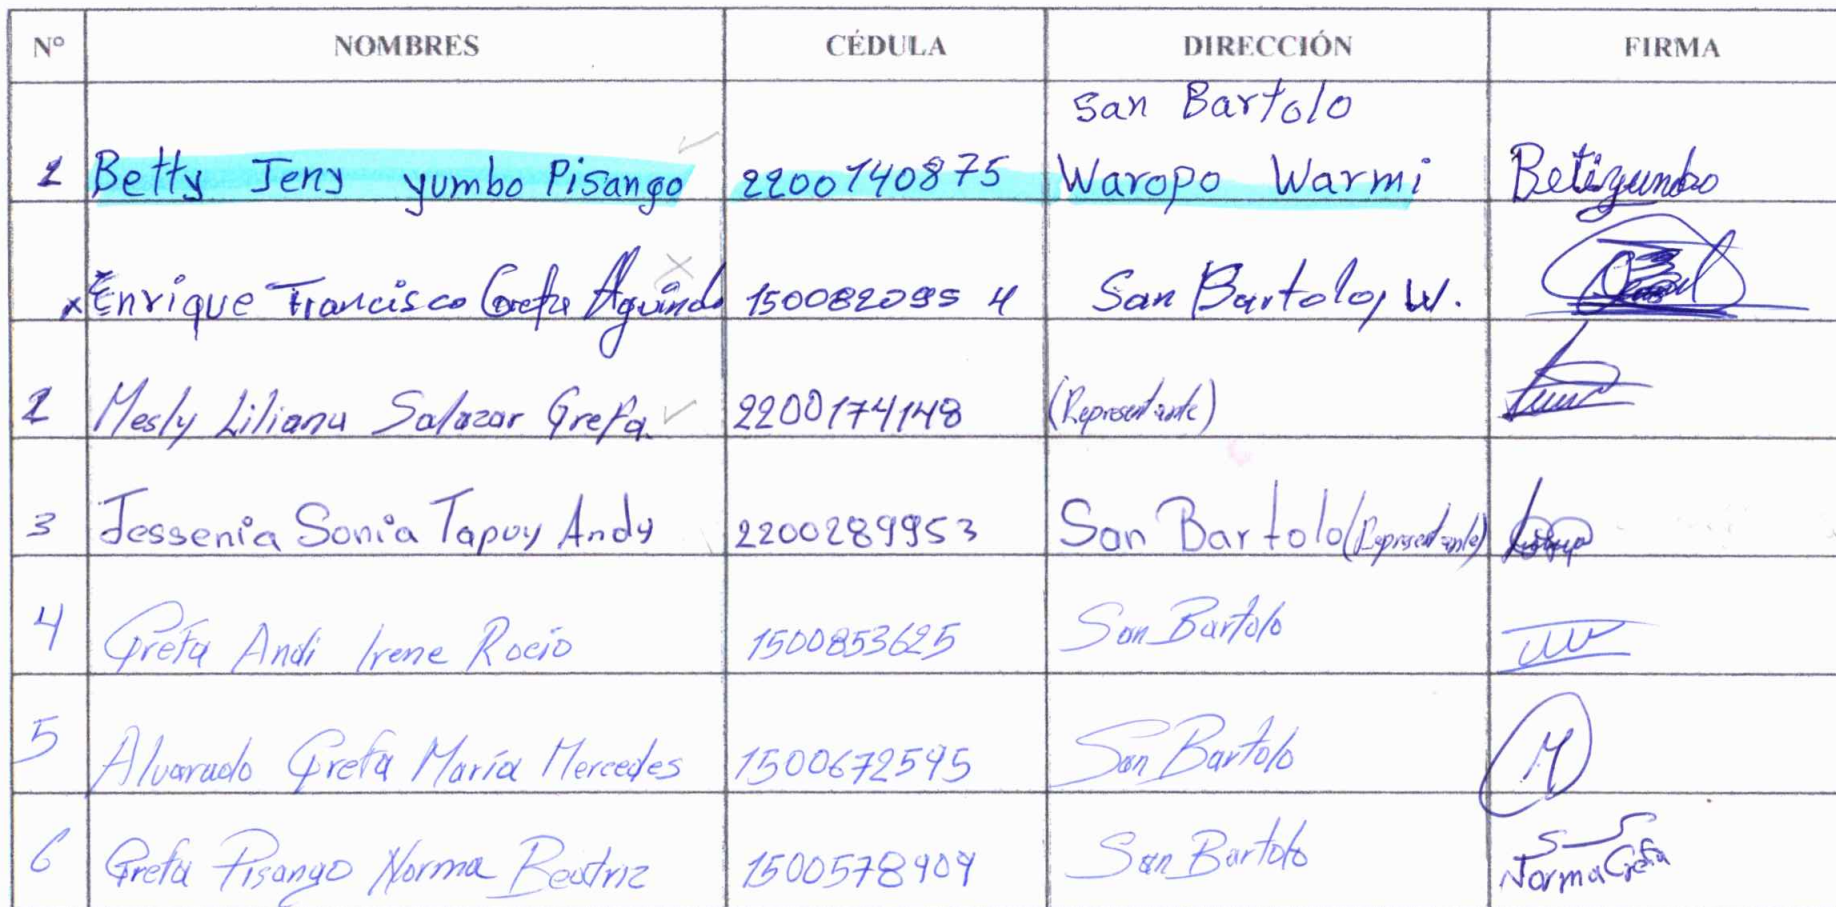 Nº NOMBRES CÉDULA DIRECCIÓN FIRMA
San Bartolo
1 Betty Jeny yumbo Pisango 2200140875 Waropo Warmi Betiyumbo
x Enrique Francisco Grefa Aguinda 150082095 4 San Bartolo, W.
2 Mesly Liliana Salazar Grefa 2200174148 (Representante)
3 Jessenia Sonia Tapuy Andy 2200289953 San Bartolo (Representante)
4 Grefa Andi Irene Rocío 1500853625 San Bartolo
5 Alvarado Grefa María Mercedes 1500672595 San Bartolo M
6 Grefa Pisango Norma Beatriz 1500578909 San Bartolo Norma Grefa